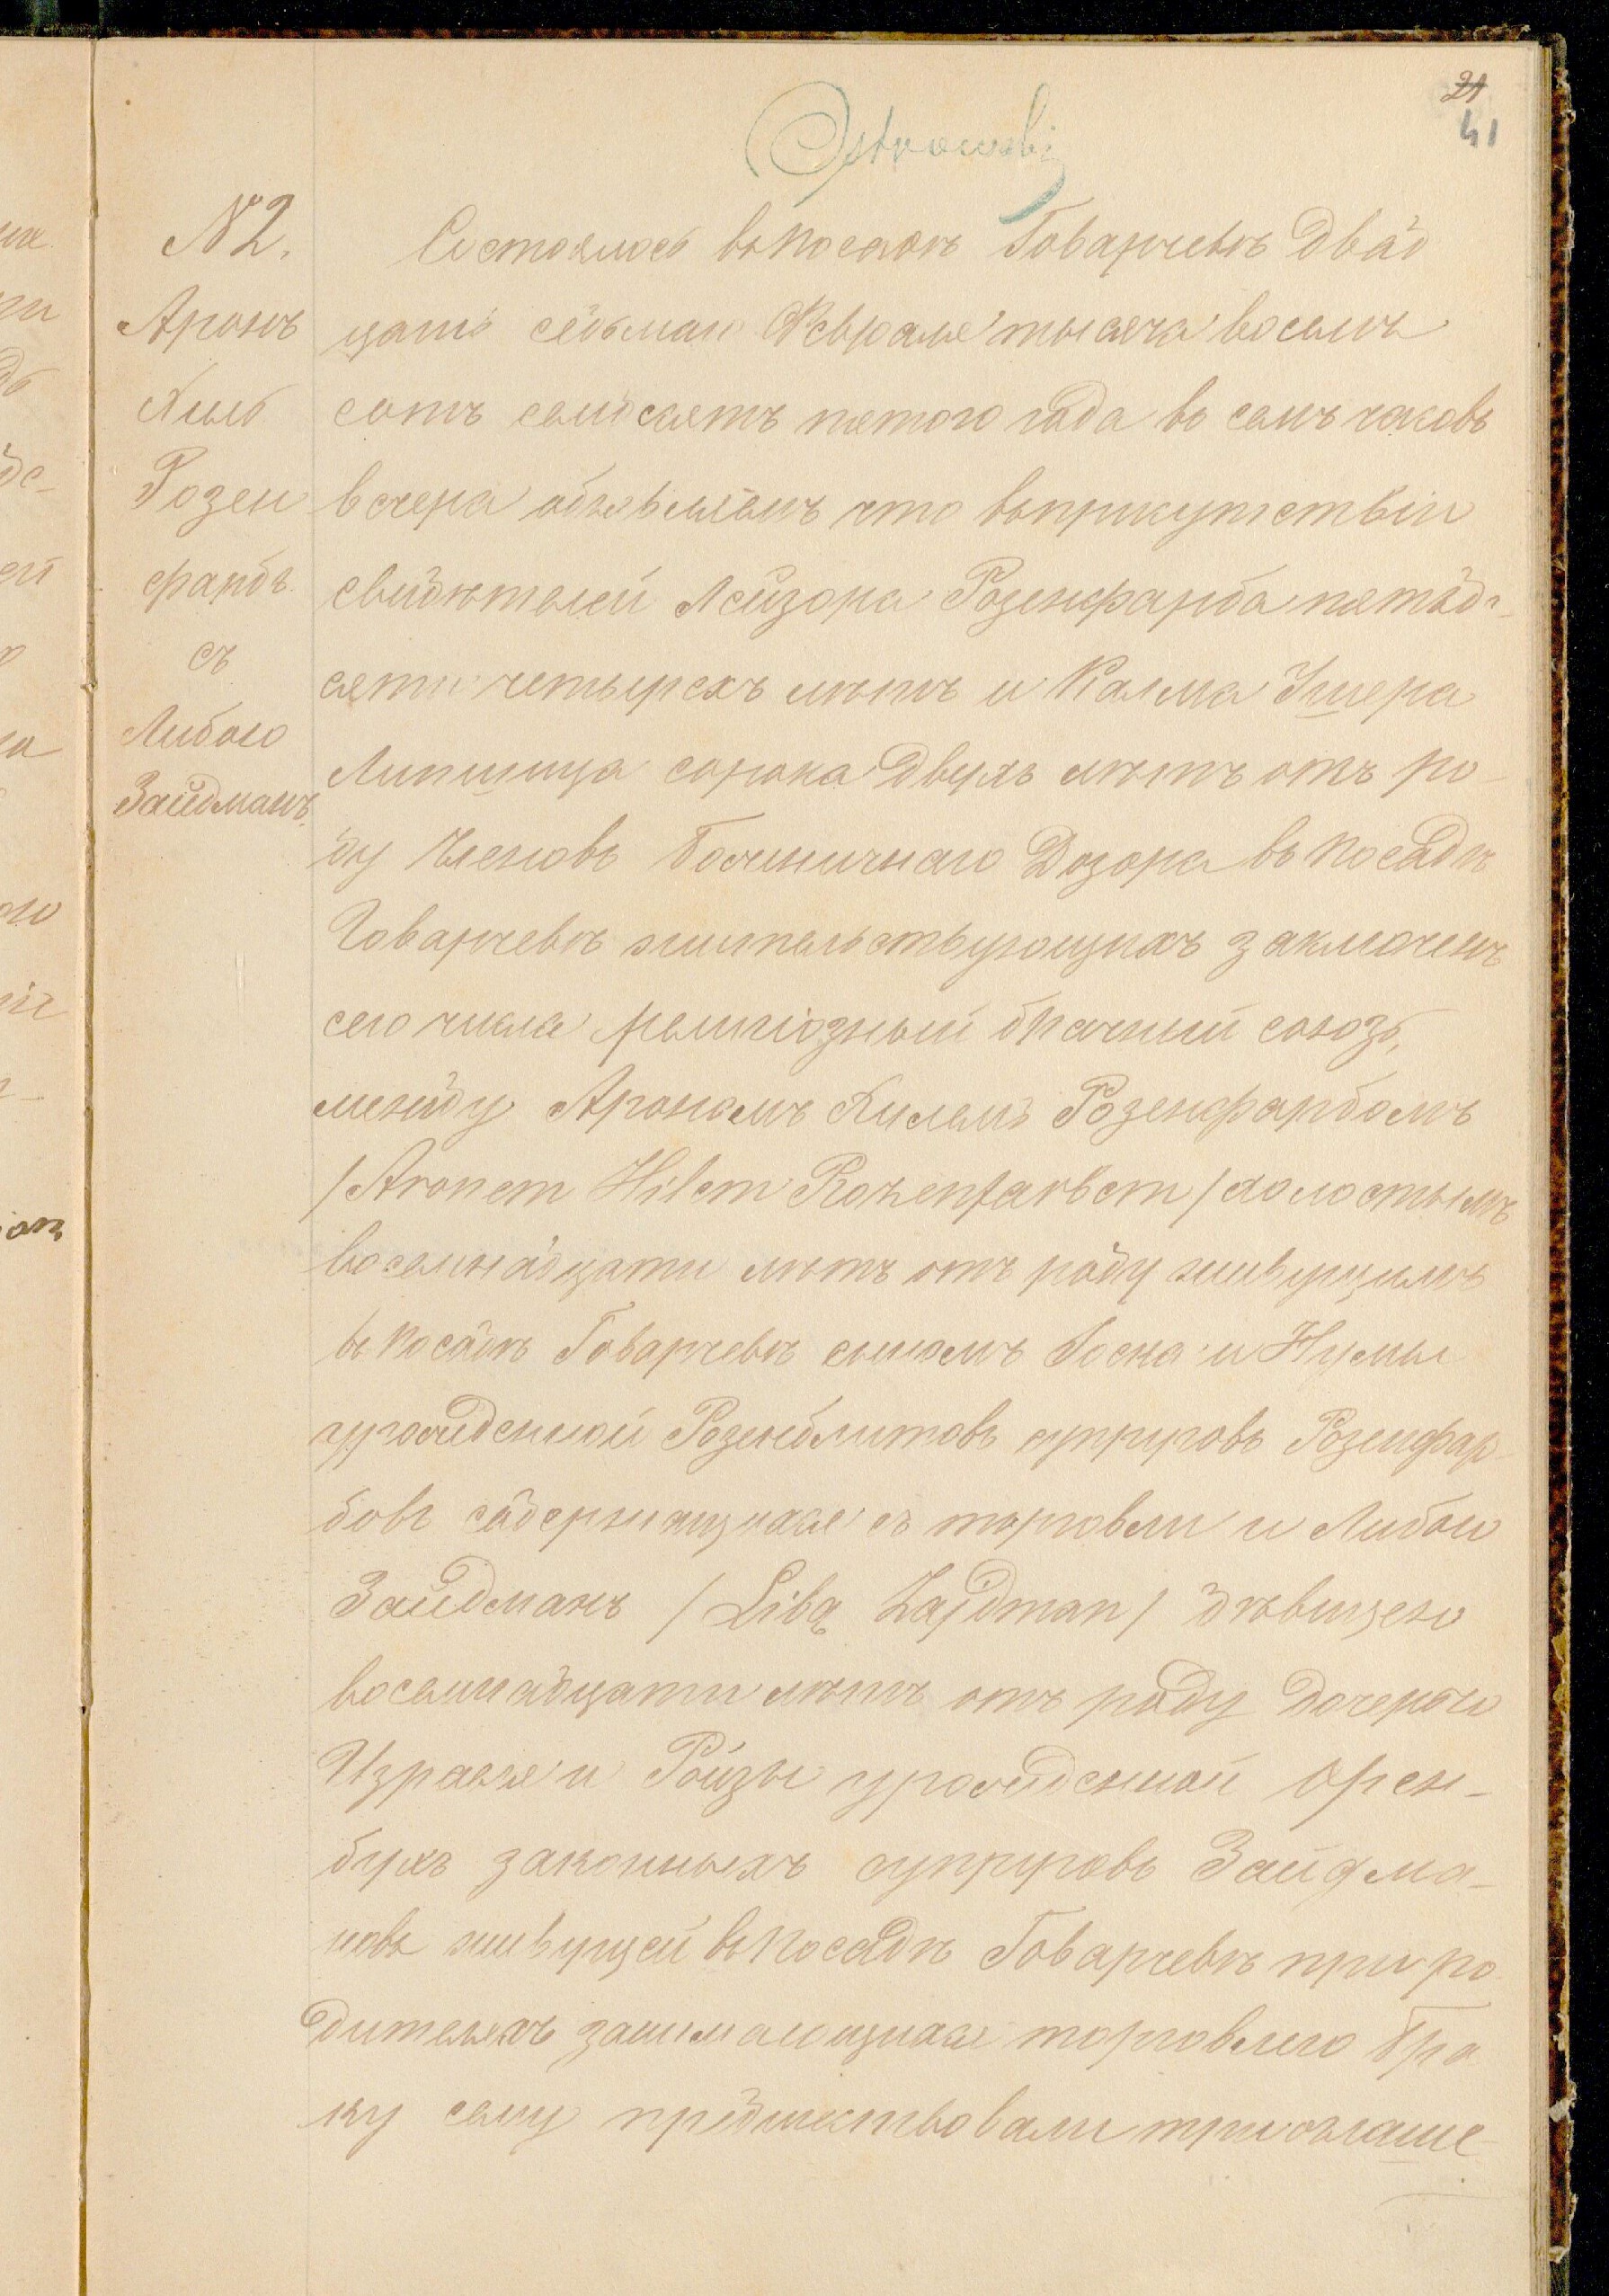 21
41
Ostrowski
N 2.
Аронъ
Хиль
Розен
фарбъ
съ
Либою
Зайдманъ.
Состоялось въ посадѣ Говарчевѣ двад
цать седьмаго Февраля тысяча восемь
сотъ семдесятъ пятого года въ семъ часовъ
вечера объявляемъ что въ присутствіи
свидѣтелей Лейзора Розенфарба пятьде-
сяти четырехъ лѣтъ и Калма Ушера
Липшица сорока двухъ лѣтъ отъ ро-
ду Членовъ Божничнаго Дозора въ посадѣ
Говарчевѣ жительствующихъ заключенъ
сего числа религіозный брачный союзъ,
между Арономъ Хилемъ Розенфарбомъ
/Aronem Hilem Rozenfarbem/ холостымъ
восемнадцати лѣтъ отъ роду живущимъ
въ посадѣ Говарчевѣ сыномъ и Нумы
урожденной Розенблитовъ супруговъ Розенфар-
бовъ содержащихся съ торговли и Либою
Зайдманъ /Libą Zajdman/ дѣвицею
восемнадцати лѣтъ отъ роду дочерью
Израеля и Ройзы урожденной Орен-
бухъ законныхъ супруговъ Зайдма-
новъ живущей въ посадѣ Говарчевѣ при ро
дителяхъ занимающихся торговлею Бра
ку сему предшествовали три оглаше-